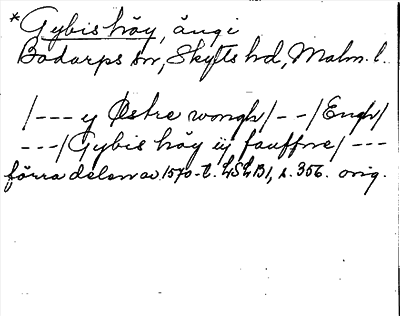 *Gybis höy, ängi
Bodarps sn, Skytts hd, Malm. l.
/--- y Østre wongh/--/Engh/
---/Gybis höy iij fauffne/---
förra delen av 1570-t. LSLB1, s. 356. orig.